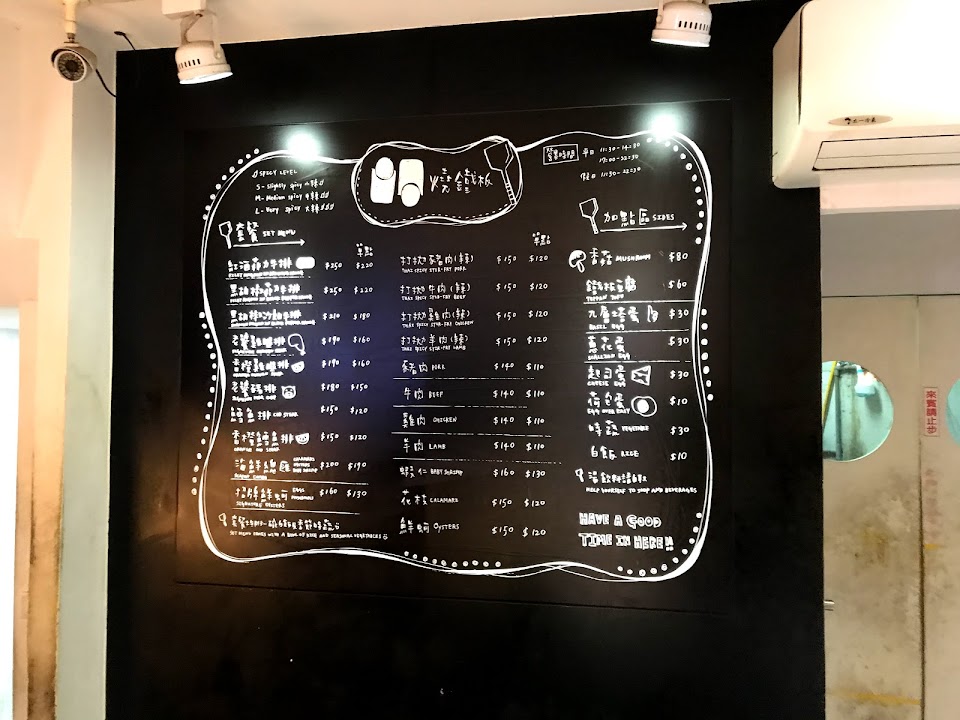 SPICY LEVEL
S - Slightly spicy 小辣
M - Medium spicy 中辣
L - Very spicy 大辣
鐵板
營業時間 平日 11:30-14:30
17:00-22:30
假日 11:30-22:30
套餐 SET MENU
單點
紅酒菲力牛排 $250 $220
黑胡椒菲力牛排 $250 $220
黑胡椒沙朗牛排 $210 $180
老醬雞腿排 $190 $160
香橙雞腿排 $190 $160
老醬豬排 $180 $150
鱈魚排 COD STEAK $150 $120
香橙鱈魚排 $150 $120
海鮮總匯 $200 $190
招牌鮮蚵 $160 $130
SET MENU COMES WITH A BOWL OF RICE AND SEASONAL VEGETABLES
單點
打拋豬肉(辣) $150 $120
THAI SPICY STIR-FRY PORK
打拋牛肉(辣) $150 $120
THAI SPICY STIR-FRY BEEF
打拋雞肉(辣) $150 $120
THAI SPICY STIR-FRY CHICKEN
打拋羊肉(辣) $150 $120
THAI SPICY STIR-FRY LAMB
豬肉 PORK $140 $110
牛肉 BEEF $140 $110
雞肉 CHICKEN $140 $110
羊肉 LAMB $140 $110
蝦仁 BABY SHRIMP $160 $130
花枝 CALAMARI $150 $120
鮮蚵 OYSTERS $150 $120
加點區 SIDES
香菇 MUSHROOM $80
鐵板豆腐 $60
TEPPAN TOFU
九層塔蛋 $30
BASIL EGG
蔥花蛋 $30
SCALLION EGG
起司蛋 $30
CHEESE EGG
荷包蛋 $10
EGG OVER EASY
時蔬 VEGETABLE $30
白飯 RICE $10
湯飲料請自取
HELP YOURSELF TO SOUP AND BEVERAGES
HAVE A GOOD
TIME IN HERE!!
來賓請止步